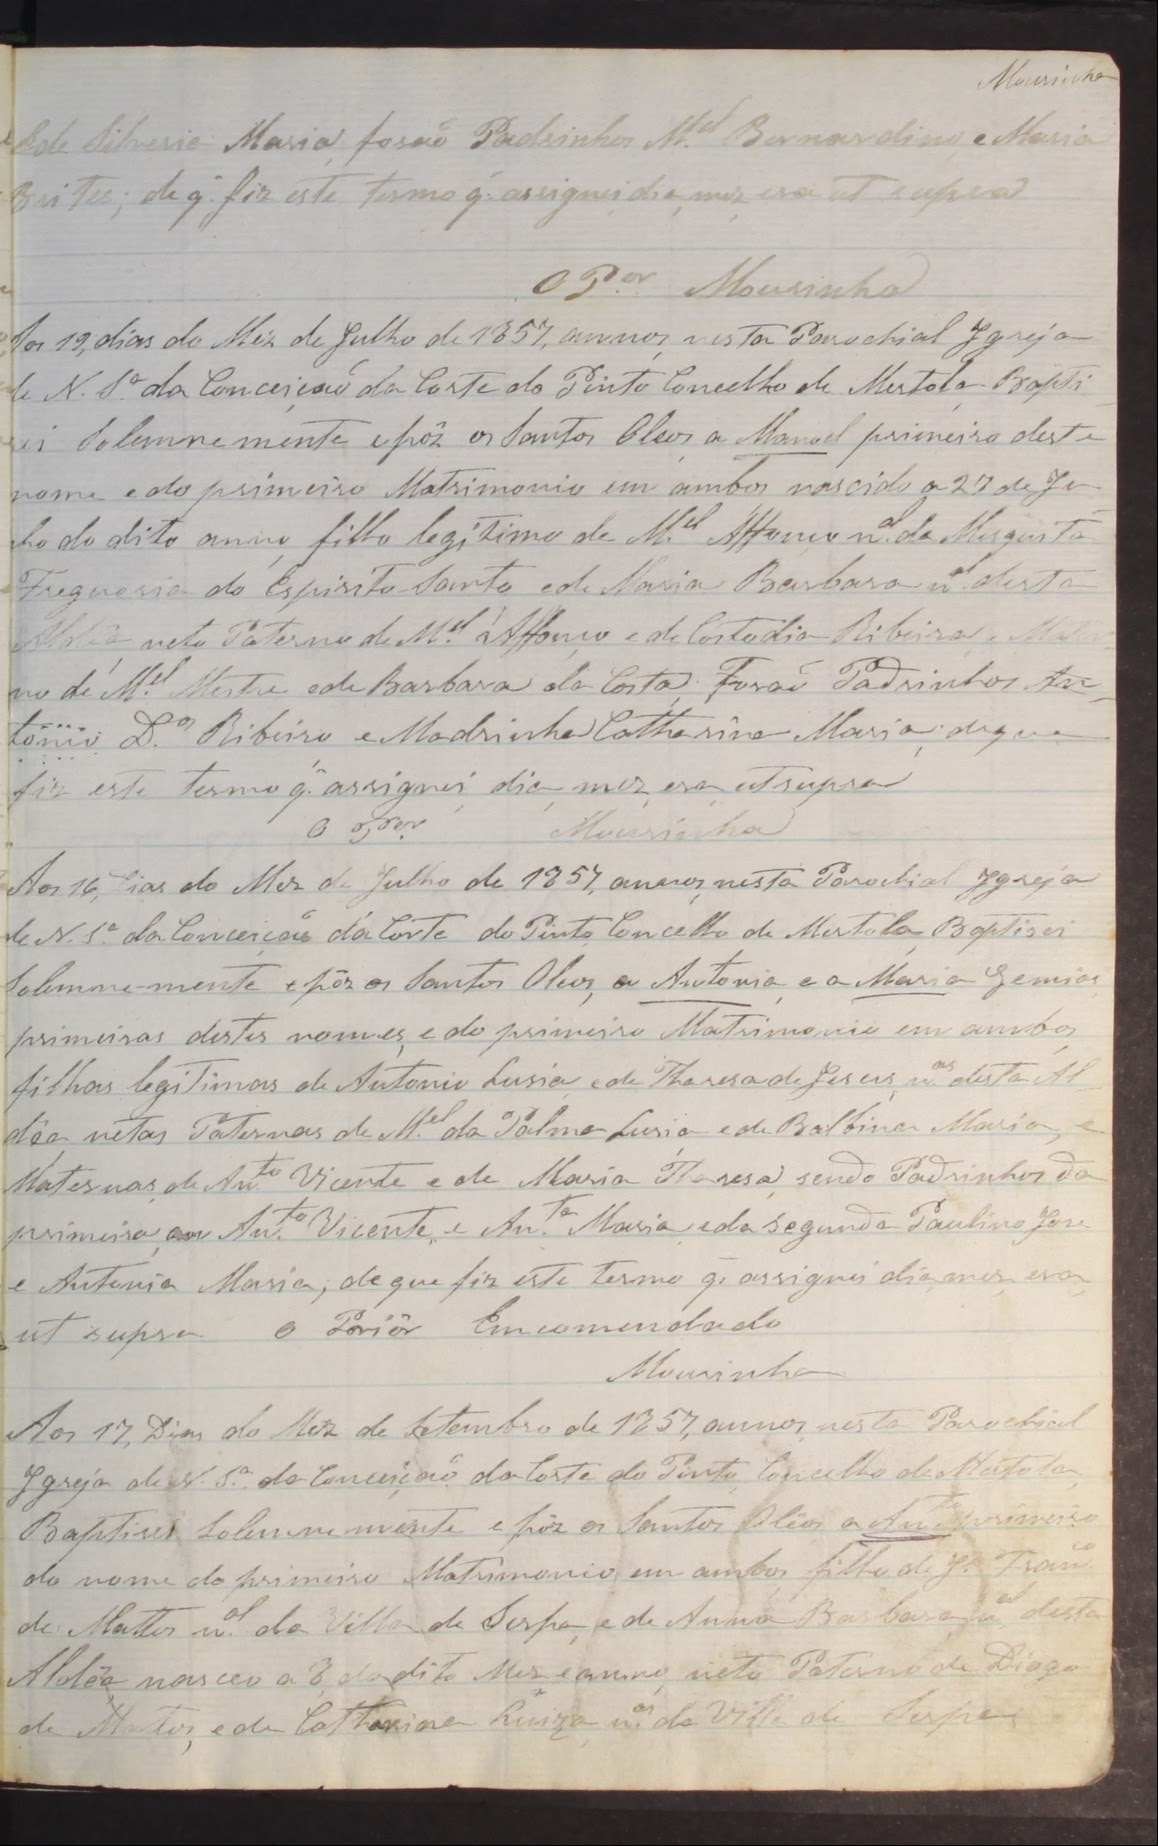 Mourinha
e de Silveria Maria, forão Padrinhos M.el Bernardino e Maria
Brites; de q̃ fiz este termo q̃ assignei dia, mez, era ut supra
O P.or Mourinha
Aos 19, dias do Mez de Julho de 1857, annos, nesta Parochial Igreja
de N. S.a da Conceição da Corte do Pinto Concelho de Mertola Bapti
sei Solemnemente e pôz os Santos Oleos a Manoel primeiro deste
nome e do primeiro Matrimonio em ambos nascido a 27 de Ju
ho do dito anno, filho legitimo de M.el Affonço n.al da
Freguesia do Espirito Santo e de Maria Barbara n.al desta
Aldêa, neto Paterno de M.el Affonço e de Costodia Ribeira, e Mater
no de M.el Mestre e de Barbara da Costa, Forão Padrinhos An
tonio D.os Ribeiro e Madrinha Catharina Maria, de que
fiz este termo q̃ assignei dia, mez, era, ut supra
O P.or Mourinha
Aos 16, dias do Mez de Julho de 1857, annos, nesta Parochial Igreja
de N. S.a da Conceição da Corte do Pinto, Concelho de Mertola, Baptisei
Solemne-mente e pôz os Santos Oleos, a Antonia, e a Maria Gemias,
primeiras destes nomes, e do primeiro Matrimonio em ambos,
filhas legitimas de Antonio Lusia, e de Theresa de Jesus, n.aes desta Al
dêa netas Paternas de M.el da Palma Lusia e de Balbina Maria, e
Maternas, de An.to Vicente e de Maria Theresa, sendo Padrinhos da
primeira An.to Vicente, e An.ta Maria e da segunda Paulino Jose
e Antonia Maria; de que fiz este termo q̃ assignei dia, mez, era,
ut supra O Priôr Encomendado
Mourinha
Aos 17, Dias do Mez de Setembro de 1857, annos, nesta Parochial
Igreja de N. S.a da Conceição da Corte do Pinto, Concelho de Mertola,
Baptisei Solemnemente e pôz os Santos Olêos a An.to primeiro
do nome do primeiro Matrimonio em ambos, filho de J.e Fran.co
de Mattos n.al da Villa de Serpa, e de Anna Barbara, n.al desta
Aldêa, nasceo a 3, do dito Mez e anno, neto Paterno de Diogo
de Mattos, e de Catharina Luiza n.aes da Villa de Serpa